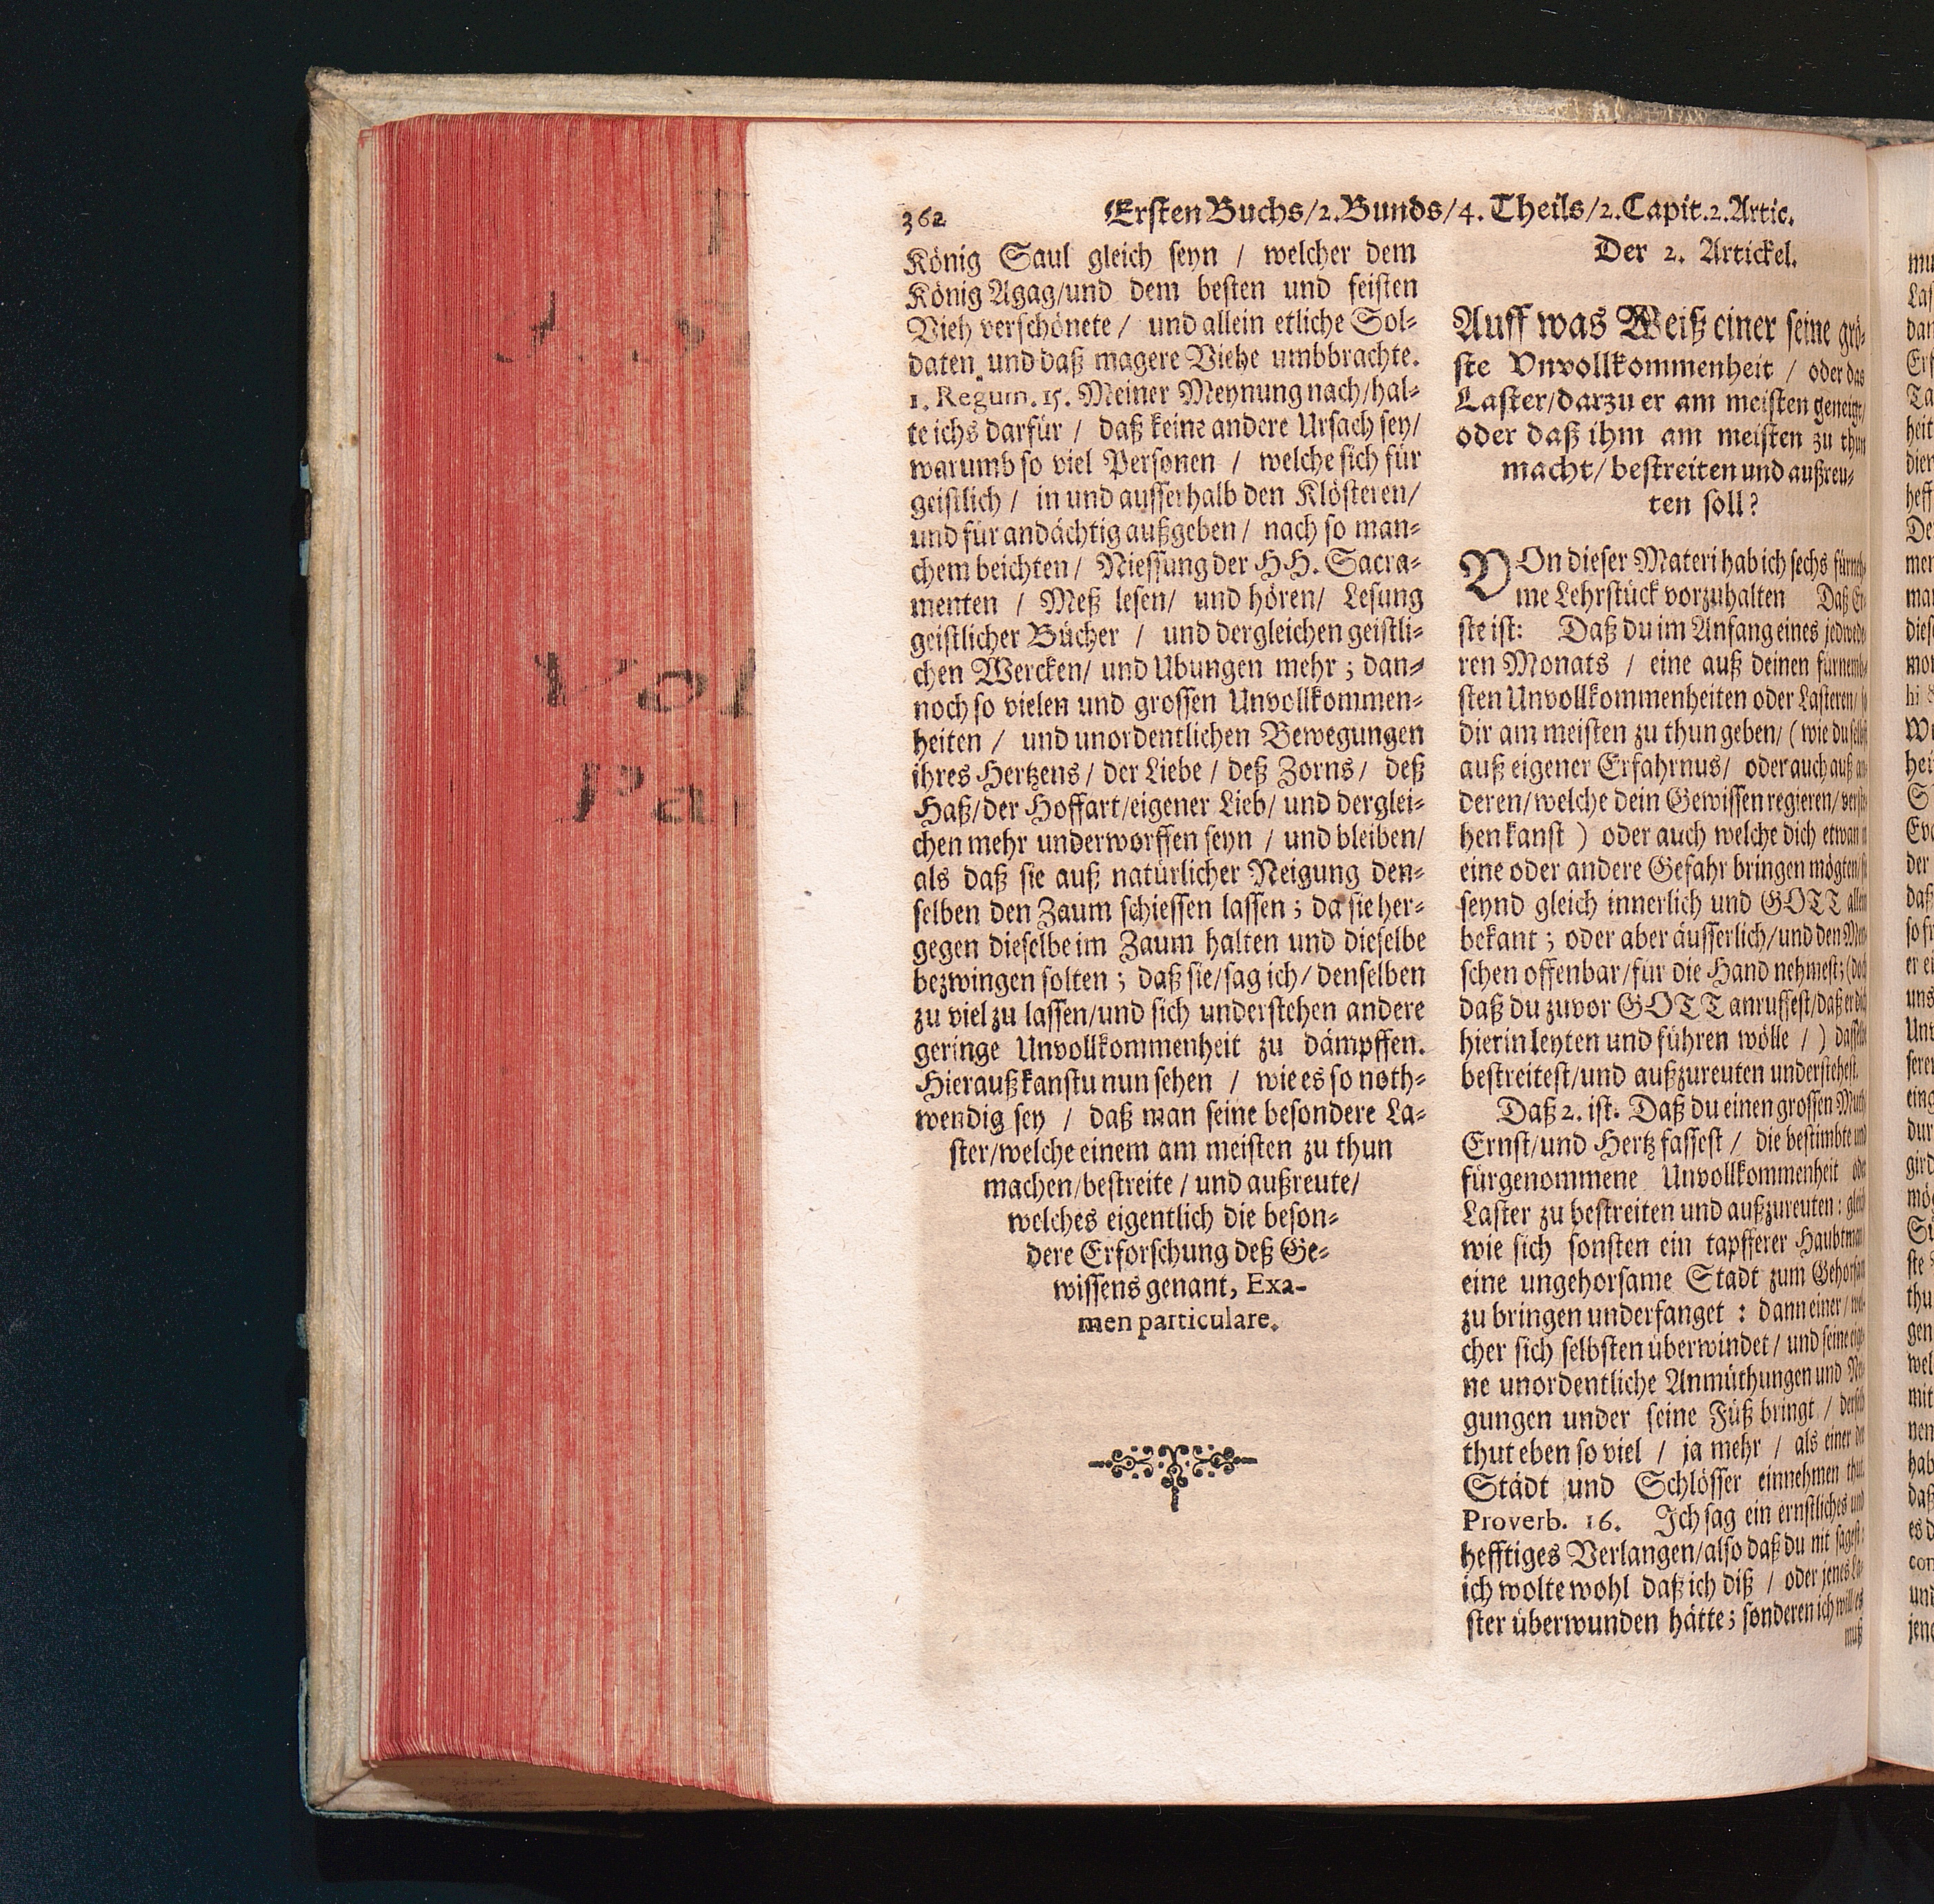 362 Ersten Buchs/2.Bunds/4. Theils/2.Capit.2.Artic.
König Saul gleich seyn / welcher dem
König Agag/und dem besten und feisten
Vieh verschönete / und allein etliche Sol-
daten und daß magere Viehe umbbrachte.
1. Regum. 15. Meiner Meynung nach/hal-
te ichs darfür / daß keine andere Ursach sey/
warumb so viel Personen / welche sich für
geistlich / in und ausserhalb den Klösteren/
und für andächtig außgeben / nach so man-
chem beichten / Niessung der HH. Sacra-
menten / Meß lesen/ und hören/ Lesung
geistlicher Bücher / und dergleichen geistli-
chen Wercken/ und Ubungen mehr; dan-
noch so vielen und grossen Unvollkommen-
heiten / und unordentlichen Bewegungen
ihres Hertzens / der Liebe / deß Zorns / deß
Haß/der Hoffart/eigener Lieb/ und derglei-
chen mehr underworffen seyn / und bleiben/
als daß sie auß natürlicher Neigung den-
selben den Zaum schiessen lassen; da sie her-
gegen dieselbe im Zaum halten und dieselbe
bezwingen solten; daß sie/sag ich/ denselben
zu viel zu lassen/und sich understehen andere
geringe Unvollkommenheit zu dämpffen.
Hierauß kanstu nun sehen / wie es so noth-
wendig sey / daß man seine besondere La-
ster/welche einem am meisten zu thun
machen/bestreite / und außreute/
welches eigentlich die beson-
dere Erforschung deß Ge-
wissens genant, Exa-
men particulare.
Der 2. Artickel.
Auff was Weiß einer seine grö-
ste Vnvollkommenheit / oder das
Laster/darzu er am meisten geneigt/
oder daß ihm am meisten zu thun
macht/ bestreiten und außreu-
ten soll?
VOn dieser Materi hab ich sechs fürneh-
me Lehrstück vorzuhalten Daß Er-
ste ist: Daß du im Anfang eines jedwede-
ren Monats / eine auß deinen fürnemb-
sten Unvollkommenheiten oder Lasteren/ so
dir am meisten zu thun geben/ (wie du selbst
auß eigener Erfahrnus/ oder auch auß an-
deren/welche dein Gewissen regieren/verste-
hen kanst ) oder auch welche dich etwan in
eine oder andere Gefahr bringen mögten/
seynd gleich innerlich und GOTT allein
bekant; oder aber äusserlich/und den Men-
schen offenbar/für die Hand nehmest; (doch
daß du zuvor GOTT anruffest/daß er dich
hierin leyten und führen wölle / ) dasselbe
bestreitest/und außzureuten understehest.
Daß 2. ist. Daß du einen grossen Muth/
Ernst/und Hertz fassest / die bestimbte und
fürgenommene Unvollkommenheit oder
Laster zu bestreiten und außzureuten: gleich
wie sich sonsten ein tapfferer Haubtman
eine ungehorsame Stadt zum Gehorsam
zu bringen underfanget : dann einer / wel-
cher sich selbsten überwindet / und seine eige-
ne unordentliche Anmüthungen und Nei-
gungen under seine Füß bringt / derselb
thut eben so viel / ja mehr / als einer der
Städt und Schlösser einnehmen thut.
Proverb. 16. Ich sag ein ernstliches und
hefftiges Verlangen/also daß du nit sagest:
ich wolte wohl daß ich diß / oder jenes La-
ster überwunden hätte; sonderen ich will es
muß